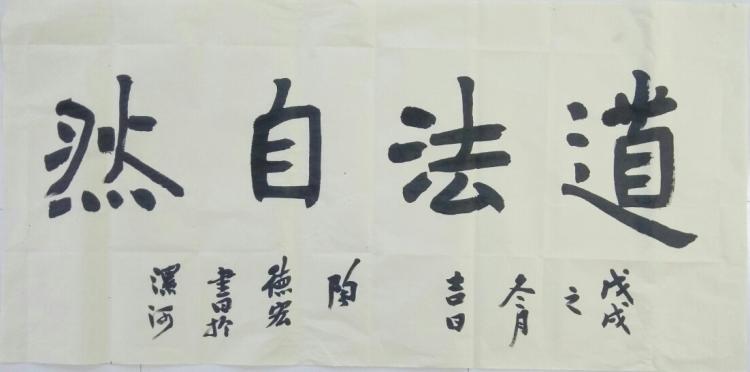 道法自然
戊戌之冬月吉日
德宏書於漯河